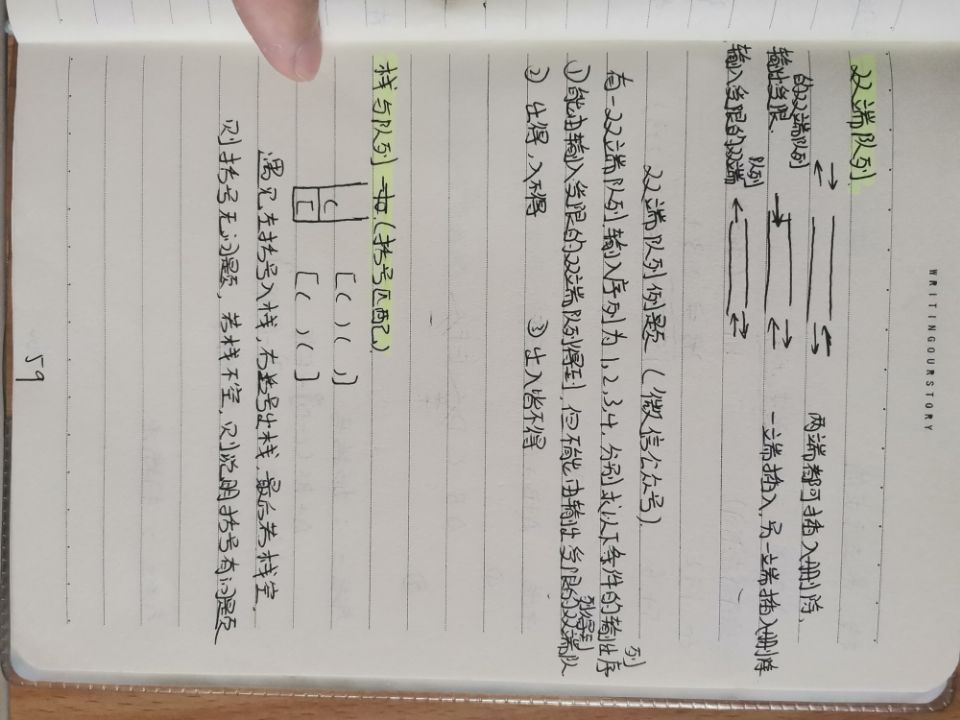 WRITINGOURSTORY
双端队列.
两端都可插入删除,
输出受限
的双端队列
一端插入,另一端插入删除
输入受限的双端
队列
双端队列例题(微信公众号).
有一双端队列,输入序列为1,2,3,4.分别求以下条件的输出序
列
①能由输入受限的双端队列得到,但不能由输出受限的双端队
列得到
② 出得,入不得
③ 出入皆不得
栈与队列 (括号匹配)
[ ( ) ( , ]
[ ( ) ( ]
遇见左括号入栈,右括号出栈,最后若栈空,
则括号无问题,若栈不空,则说明括号有问题
59